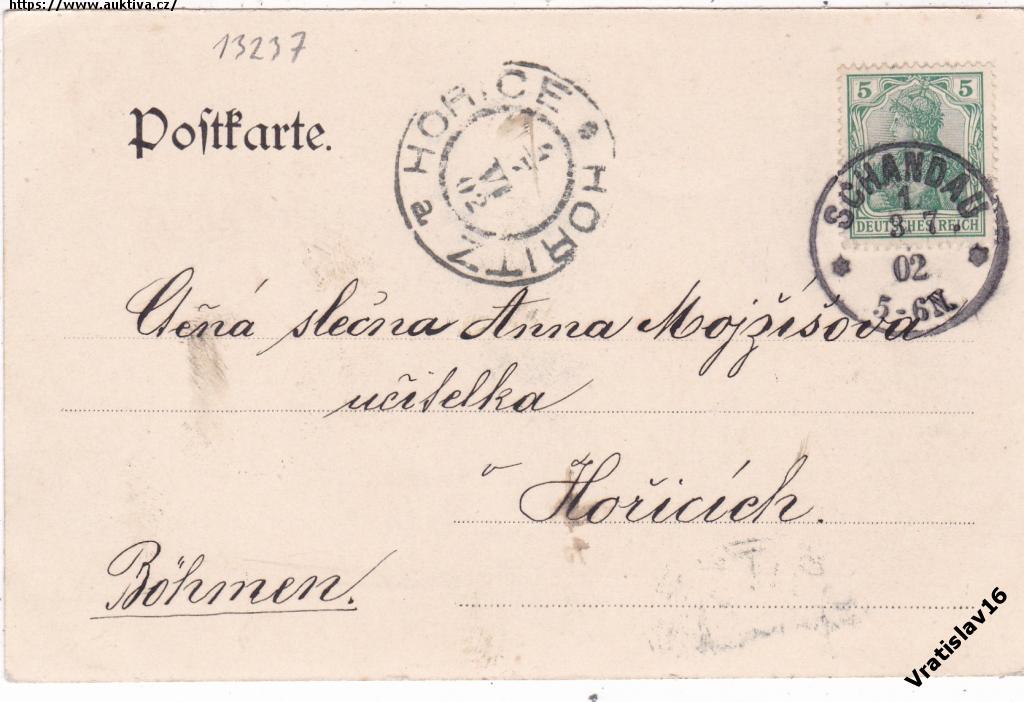 https://www.auktiva.cz/
13237
Postkarte.
HOŘICE * HOŘITZ a
VI
02
5 5
DEUTSCHES REICH
SCHANDAU
1.
3 7.
02
5-6N.
Ctěná slečna Anna Mojžíšova
učitelka
v Hořicích.
Böhmen.
Vratislav16